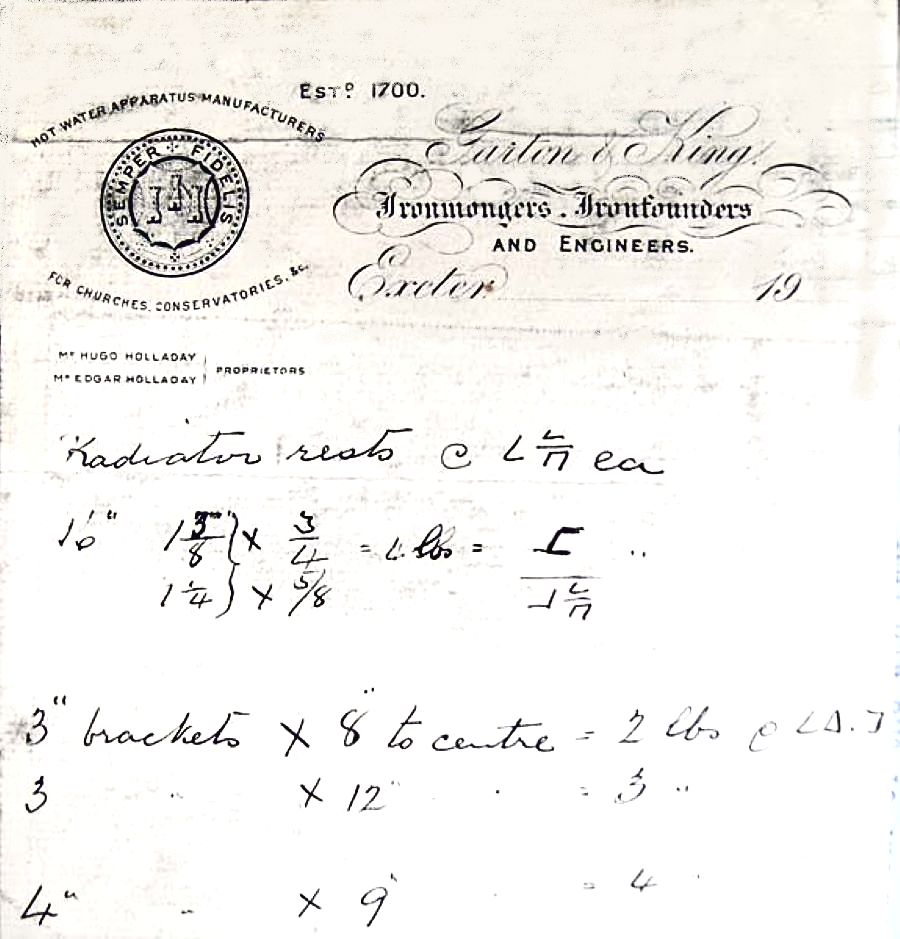 Estd 1700.
HOT WATER APPARATUS MANUFACTURERS
SEMPER FIDELIS
FOR CHURCHES, CONSERVATORIES, &c.
Garton & King,
Ironmongers. Ironfounders
AND ENGINEERS.
Exeter 19
Mr HUGO HOLLADAY
Mr EDGAR HOLLADAY
PROPRIETORS
Radiator rests @ ea
16" 1 3/8" } x 3/4 = lbs =
} x 5/8
3" brackets x 8" to centre = 2 lbs @
3 " x 12" " = 3 "
4" " x 9" " = 4 "